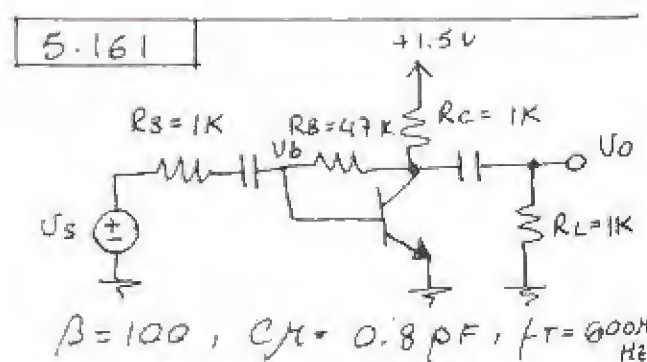 5.161
+1.5V
RS=1K
RB=47K
RC=1K
Ub
Uo
Us
+
-
RL=1K
β=100, Cμ= 0.8 pF, fT=600MHz